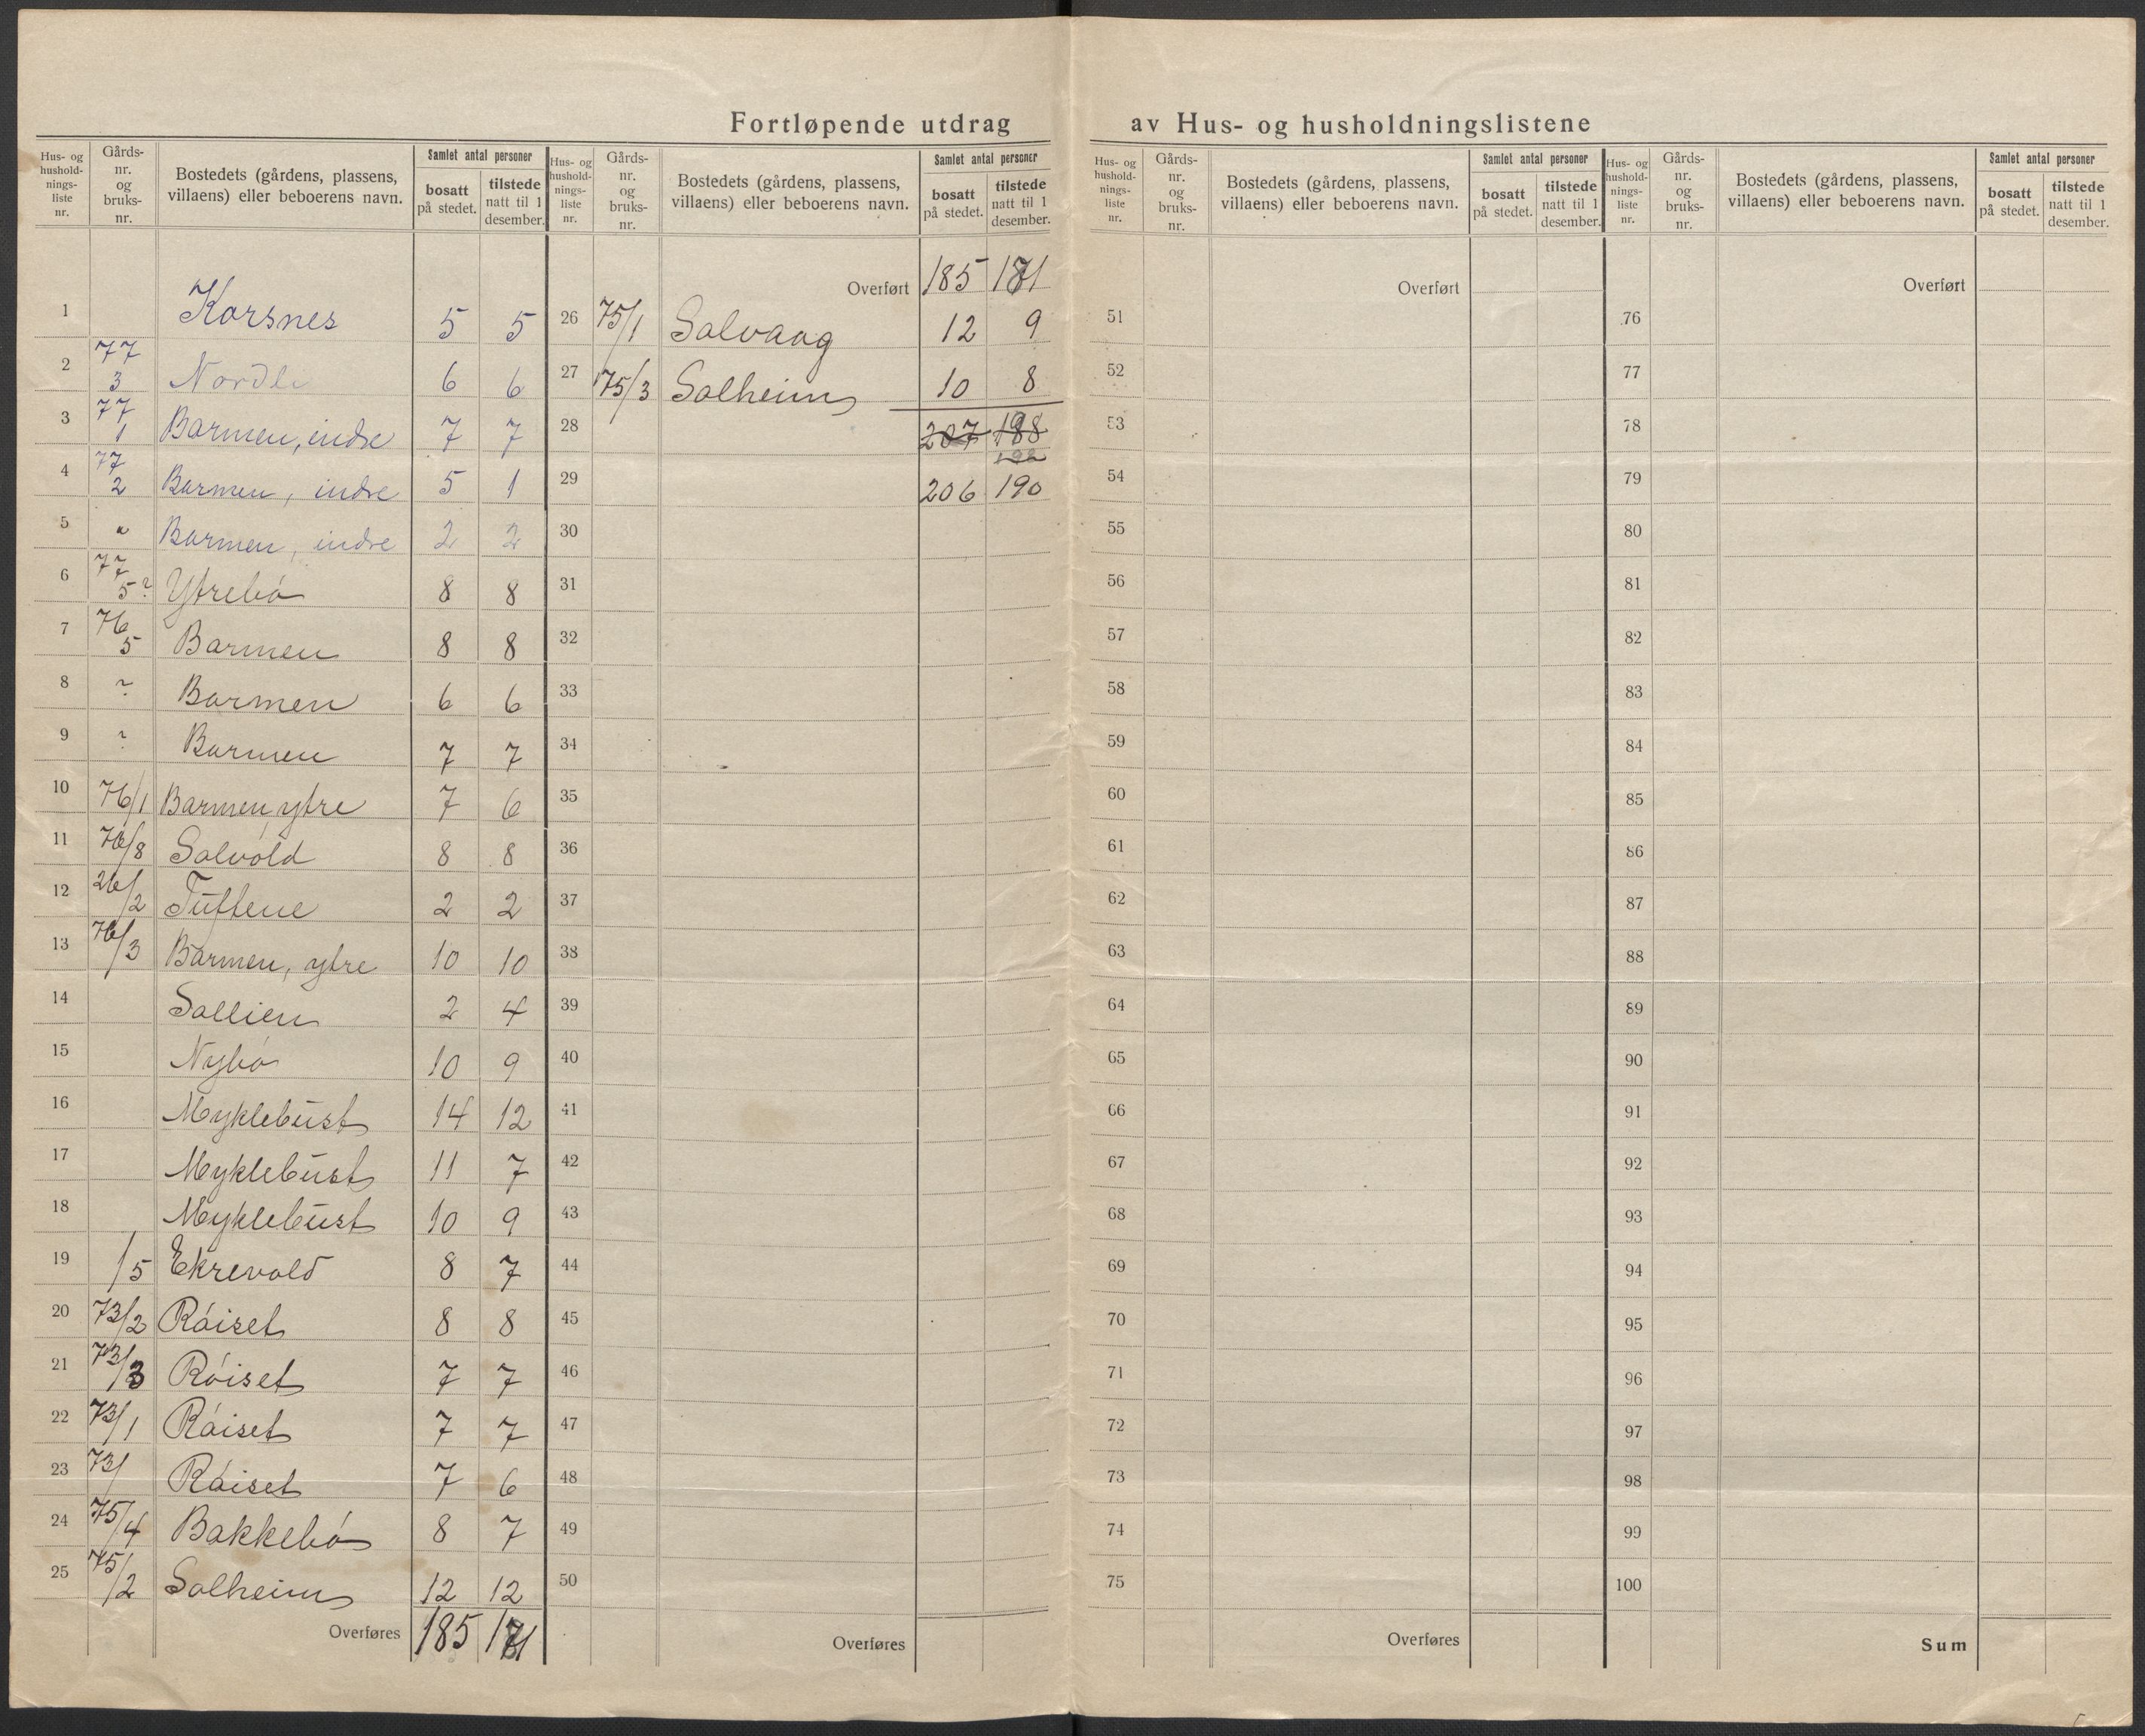 Fortløpende utdrag av Hus- og husholdningslistene
Hus- og hushold-nings-liste nr. Gårds-nr. og bruks-nr. Bostedets (gårdens, plassens, villaens) eller beboerens navn. Samlet antal personer bosatt på stedet. tilstede natt til 1 desember.
1 Korsnes 5 5
2 77/3 Nordli 6 6
3 77/1 Barmen, indre 7 7
4 77/2 Barmen, indre 5 1
5 " Barmen, indre 2 2
6 77/5? Ytrebó 8 8
7 76/5 Barmen 8 8
8 ? Barmen 6 6
9 ? Barmen 7 7
10 76/1 Barmen ytre 7 6
11 76/8 Solvold 8 8
12 26/2 Tuftene 2 2
13 76/3 Barmen, ytre 10 10
14 Sollien 2 4
15 Nybó 10 9
16 Myklebust 14 12
17 Myklebust 11 7
18 Myklebust 10 9
19 /5 Ekrevold 8 7
20 73/2 Róiset 8 8
21 73/3 Róiset 7 7
22 73/1 Róiset 7 7
23 73/ Róiset 7 6
24 75/4 Bakkebó 8 7
25 75/2 Solheim 12 12
Overføres 185 171
Hus- og hushold-nings-liste nr. Gårds-nr. og bruks-nr. Bostedets (gårdens, plassens, villaens) eller beboerens navn. Samlet antal personer bosatt på stedet. tilstede natt til 1 desember.
Overført 185 171
26 75/1 Solvaag 12 9
27 75/3 Solheim 10 8
28 207 188
29 206 190
30
31
32
33
34
35
36
37
38
39
40
41
42
43
44
45
46
47
48
49
50
Overføres
Hus- og hushold-nings-liste nr. Gårds-nr. og bruks-nr. Bostedets (gårdens, plassens, villaens) eller beboerens navn. Samlet antal personer bosatt på stedet. tilstede natt til 1 desember.
Overført
51
52
53
54
55
56
57
58
59
60
61
62
63
64
65
66
67
68
69
70
71
72
73
74
75
Overføres
Hus- og hushold-nings-liste nr. Gårds-nr. og bruks-nr. Bostedets (gårdens, plassens, villaens) eller beboerens navn. Samlet antal personer bosatt på stedet. tilstede natt til 1 desember.
Overført
76
77
78
79
80
81
82
83
84
85
86
87
88
89
90
91
92
93
94
95
96
97
98
99
100
Sum